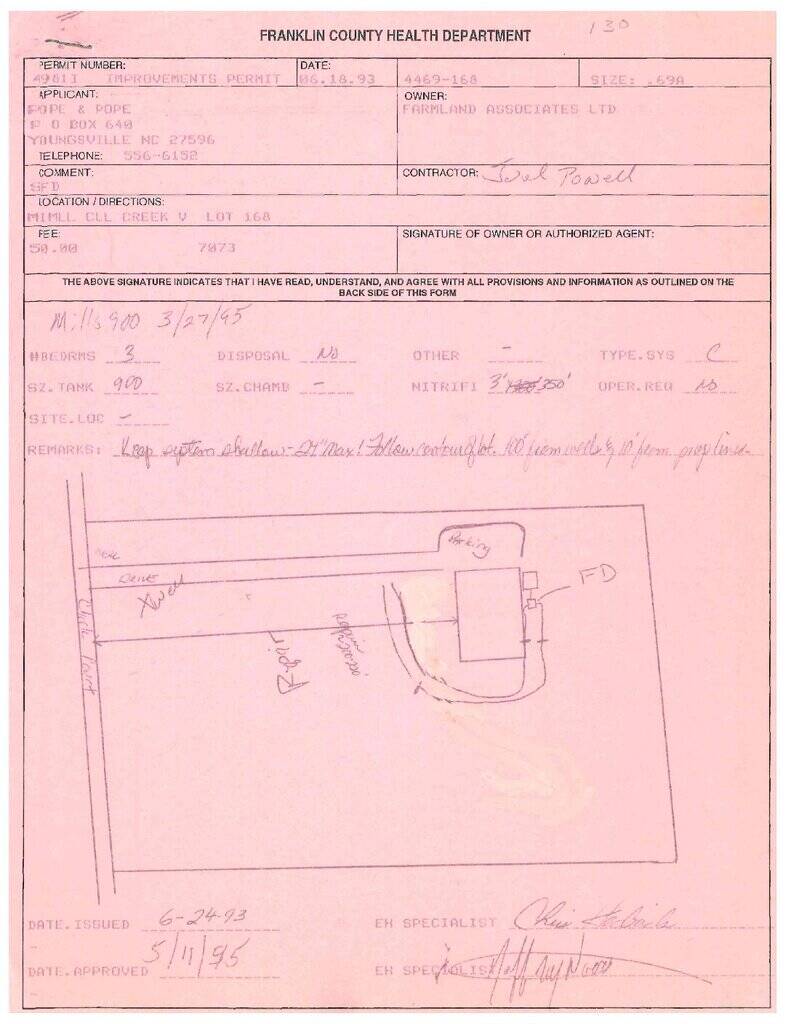 130
FRANKLIN COUNTY HEALTH DEPARTMENT
PERMIT NUMBER: DATE:
IMPROVEMENTS PERMIT 06.18.93 4469-168 SIZE: .69A
APPLICANT: OWNER:
POPE & POPE FARMLAND ASSOCIATES LTD
P O BOX 640
YOUNGSVILLE NC 27596
TELEPHONE: 556-6152
COMMENT: CONTRACTOR: Powell
SFD
LOCATION / DIRECTIONS:
CREEK V LOT 168
FEE: SIGNATURE OF OWNER OR AUTHORIZED AGENT:
50.00 7073
THE ABOVE SIGNATURE INDICATES THAT I HAVE READ, UNDERSTAND, AND AGREE WITH ALL PROVISIONS AND INFORMATION AS OUTLINED ON THE
BACK SIDE OF THIS FORM
Mills 900 3/27/95
#BEDRMS 3 DISPOSAL No OTHER - TYPE.SYS C
SZ.TANK 900 SZ.CHAMB - NITRIFI 3' 350' OPER.REQ No
SITE.LOC -
REMARKS: Keep system shallow - 24" Max! Follow contour of lot. 100' from wells & 10' from prop lines.
Parking
DRIVE
FD
Xwell
repair
Repair
DATE.ISSUED 6-24-93 EH SPECIALIST Chris
DATE.APPROVED 5/11/95 EH SPECIALIST